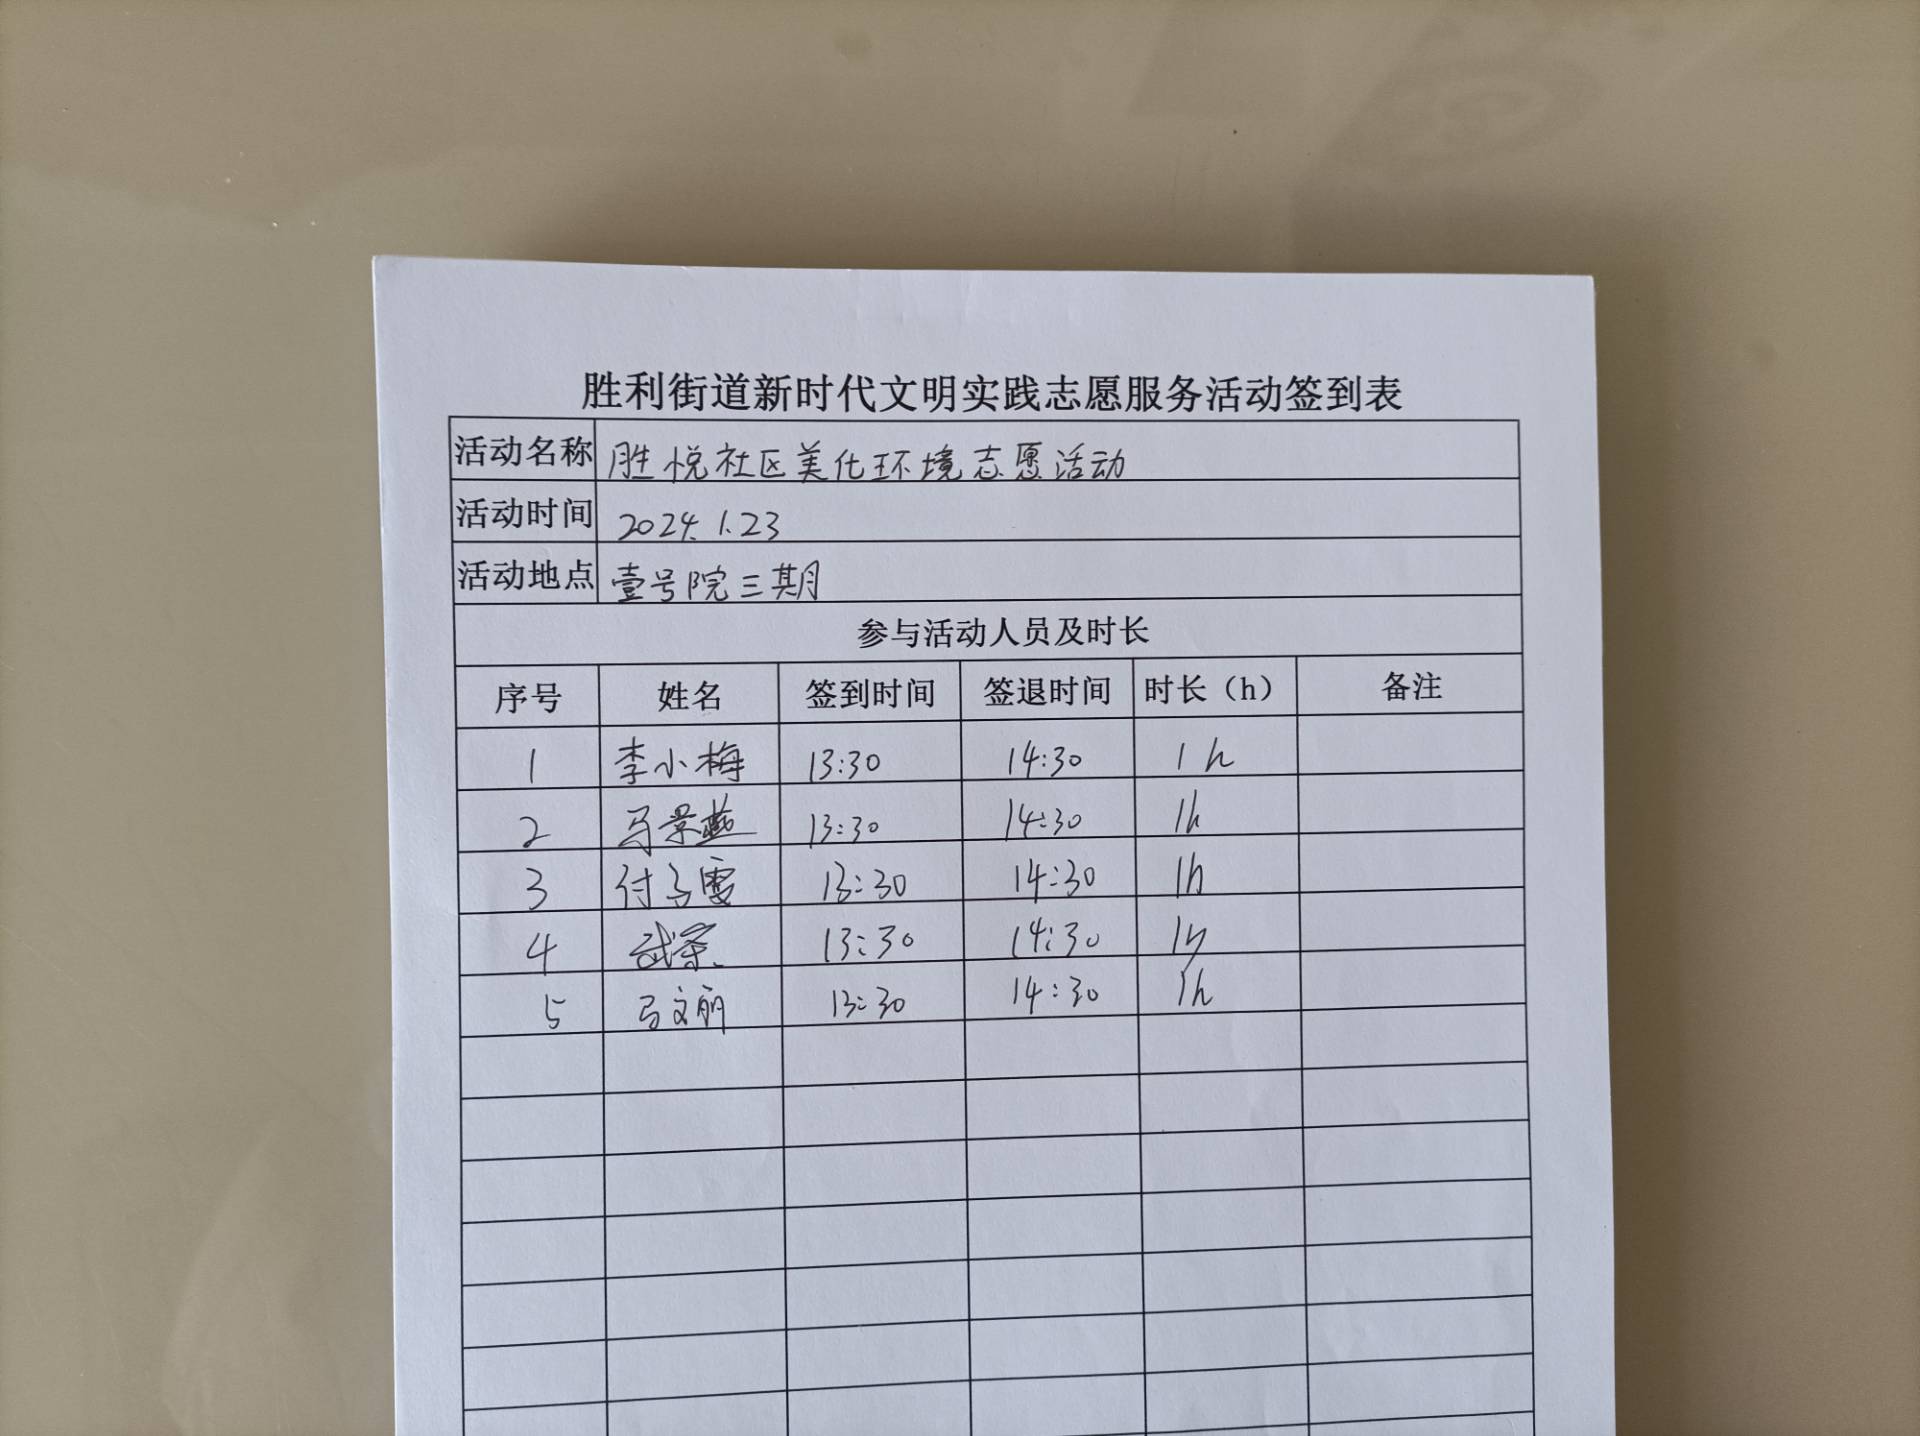 胜利街道新时代文明实践志愿服务活动签到表
活动名称 胜悦社区美化环境志愿活动
活动时间 2024.1.23
活动地点 壹号院三期
参与活动人员及时长
序号 姓名 签到时间 签退时间 时长（h） 备注
1 李小梅 13:30 14:30 1h
2 马景燕 13:30 14:30 1h
3 付 13:30 14:30 1h
4 武 13:30 14:30 1h
5 马文丽 13:30 14:30 1h